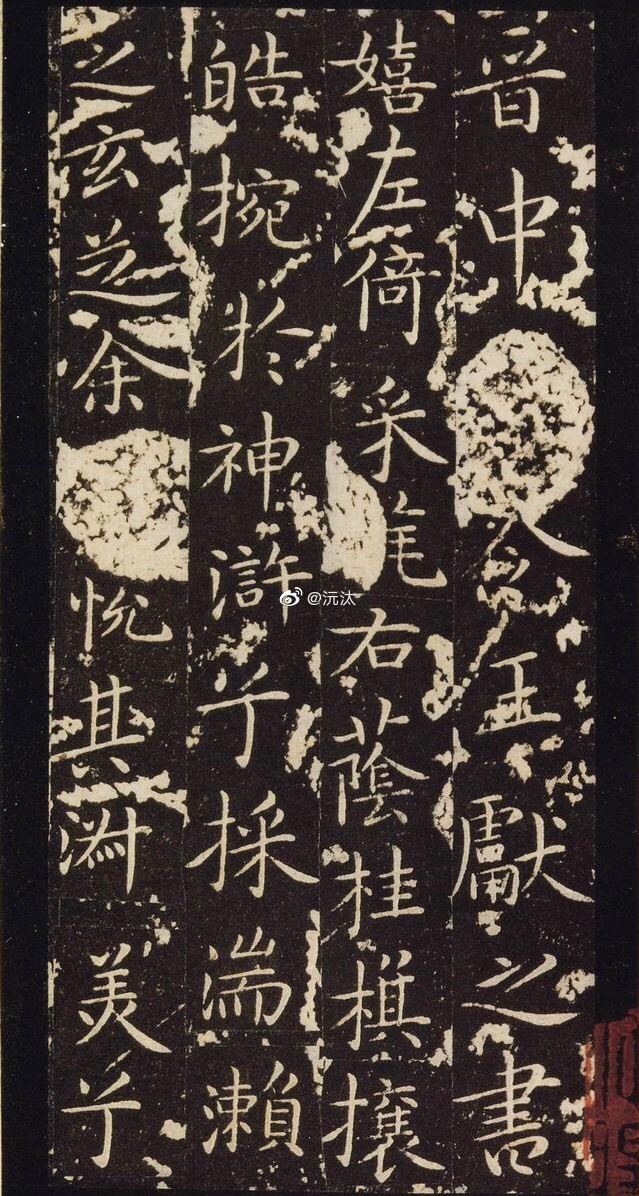 晋中令王獻之書
嬉左倚采旄右蔭桂旗攘
皓捥於神滸兮採湍瀨
之玄芝余悅其淑美兮
@沅汰